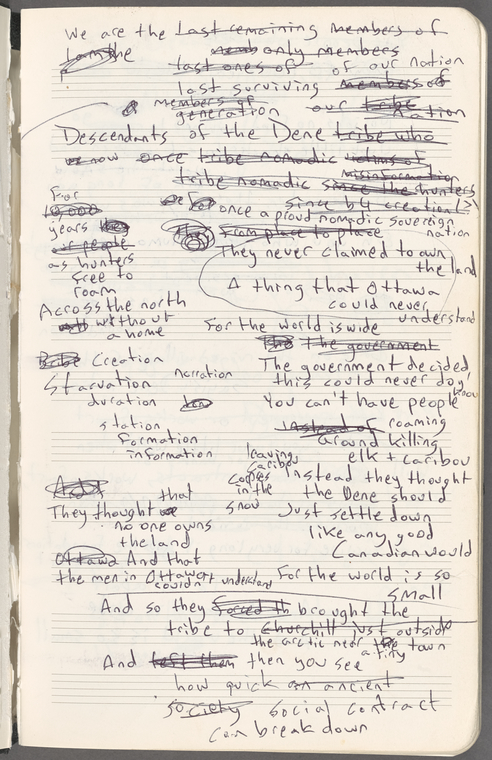 We are the Last remaining members of
I am the only members
last ones of of our nation
last surviving members of
a members of our tribe
generation Nation
Descendants of the Dene tribe who
now once tribe nomadic victims of
misinformation
tribe nomadic since the hunters
since by creation(s)
For once a proud nomadic sovereign
10,000 nation
years From place to place
our people They never claimed to own
as hunters the land
free to A thing that Ottawa
roam could never
Across the north understand
without For the world is wide
a home
The the government
Bribe Creation The government decided
Starvation narration this could never do
duration You can't have people you know
station instead of roaming
formation around killing
information leaving elk + caribou
caribou
And corpses Instead they thought
that in the the Dene should
They thought snow Just settle down
no one owns like any good
the land Canadian would
Ottawa And that
the men in Ottawa For the world is so
couldn't understand small
And so they forced th brought the
tribe to Churchill just outside
the arctic near the town
a tiny
And left them then you see
how quick an ancient
society social contract
can break down